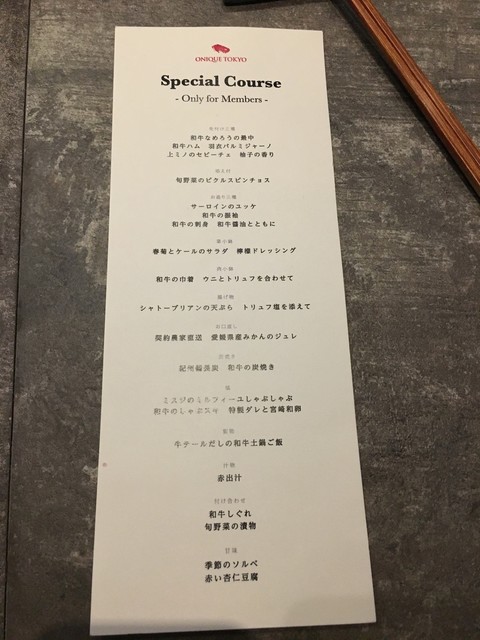 ONIQUE TOKYO
Special Course
- Only for Members -
和牛なめろうの最中
和牛ハム 羽衣パルミジャーノ
上ミノのセビーチェ 柚子の香り
旬野菜のピクルスピンチョス
サーロインのユッケ
和牛の飯袖
和牛の刺身 和牛醤油とともに
春菊とケールのサラダ 檸檬ドレッシング
和牛の巾着 ウニとトリュフを合わせて
揚げ物
シャトーブリアンの天ぷら トリュフ塩を添えて
お口直し
契約農家直送 愛媛県産みかんのジュレ
紀州備長炭 和牛の炭焼き
鍋
ミスジのミルフィーユしゃぶしゃぶ
和牛のしゃぶスキ 特製ダレと宮崎和卵
牛テールだしの和牛土鍋ご飯
汁物
赤出汁
付け合わせ
和牛しぐれ
旬野菜の漬物
甘味
季節のソルベ
赤い杏仁豆腐